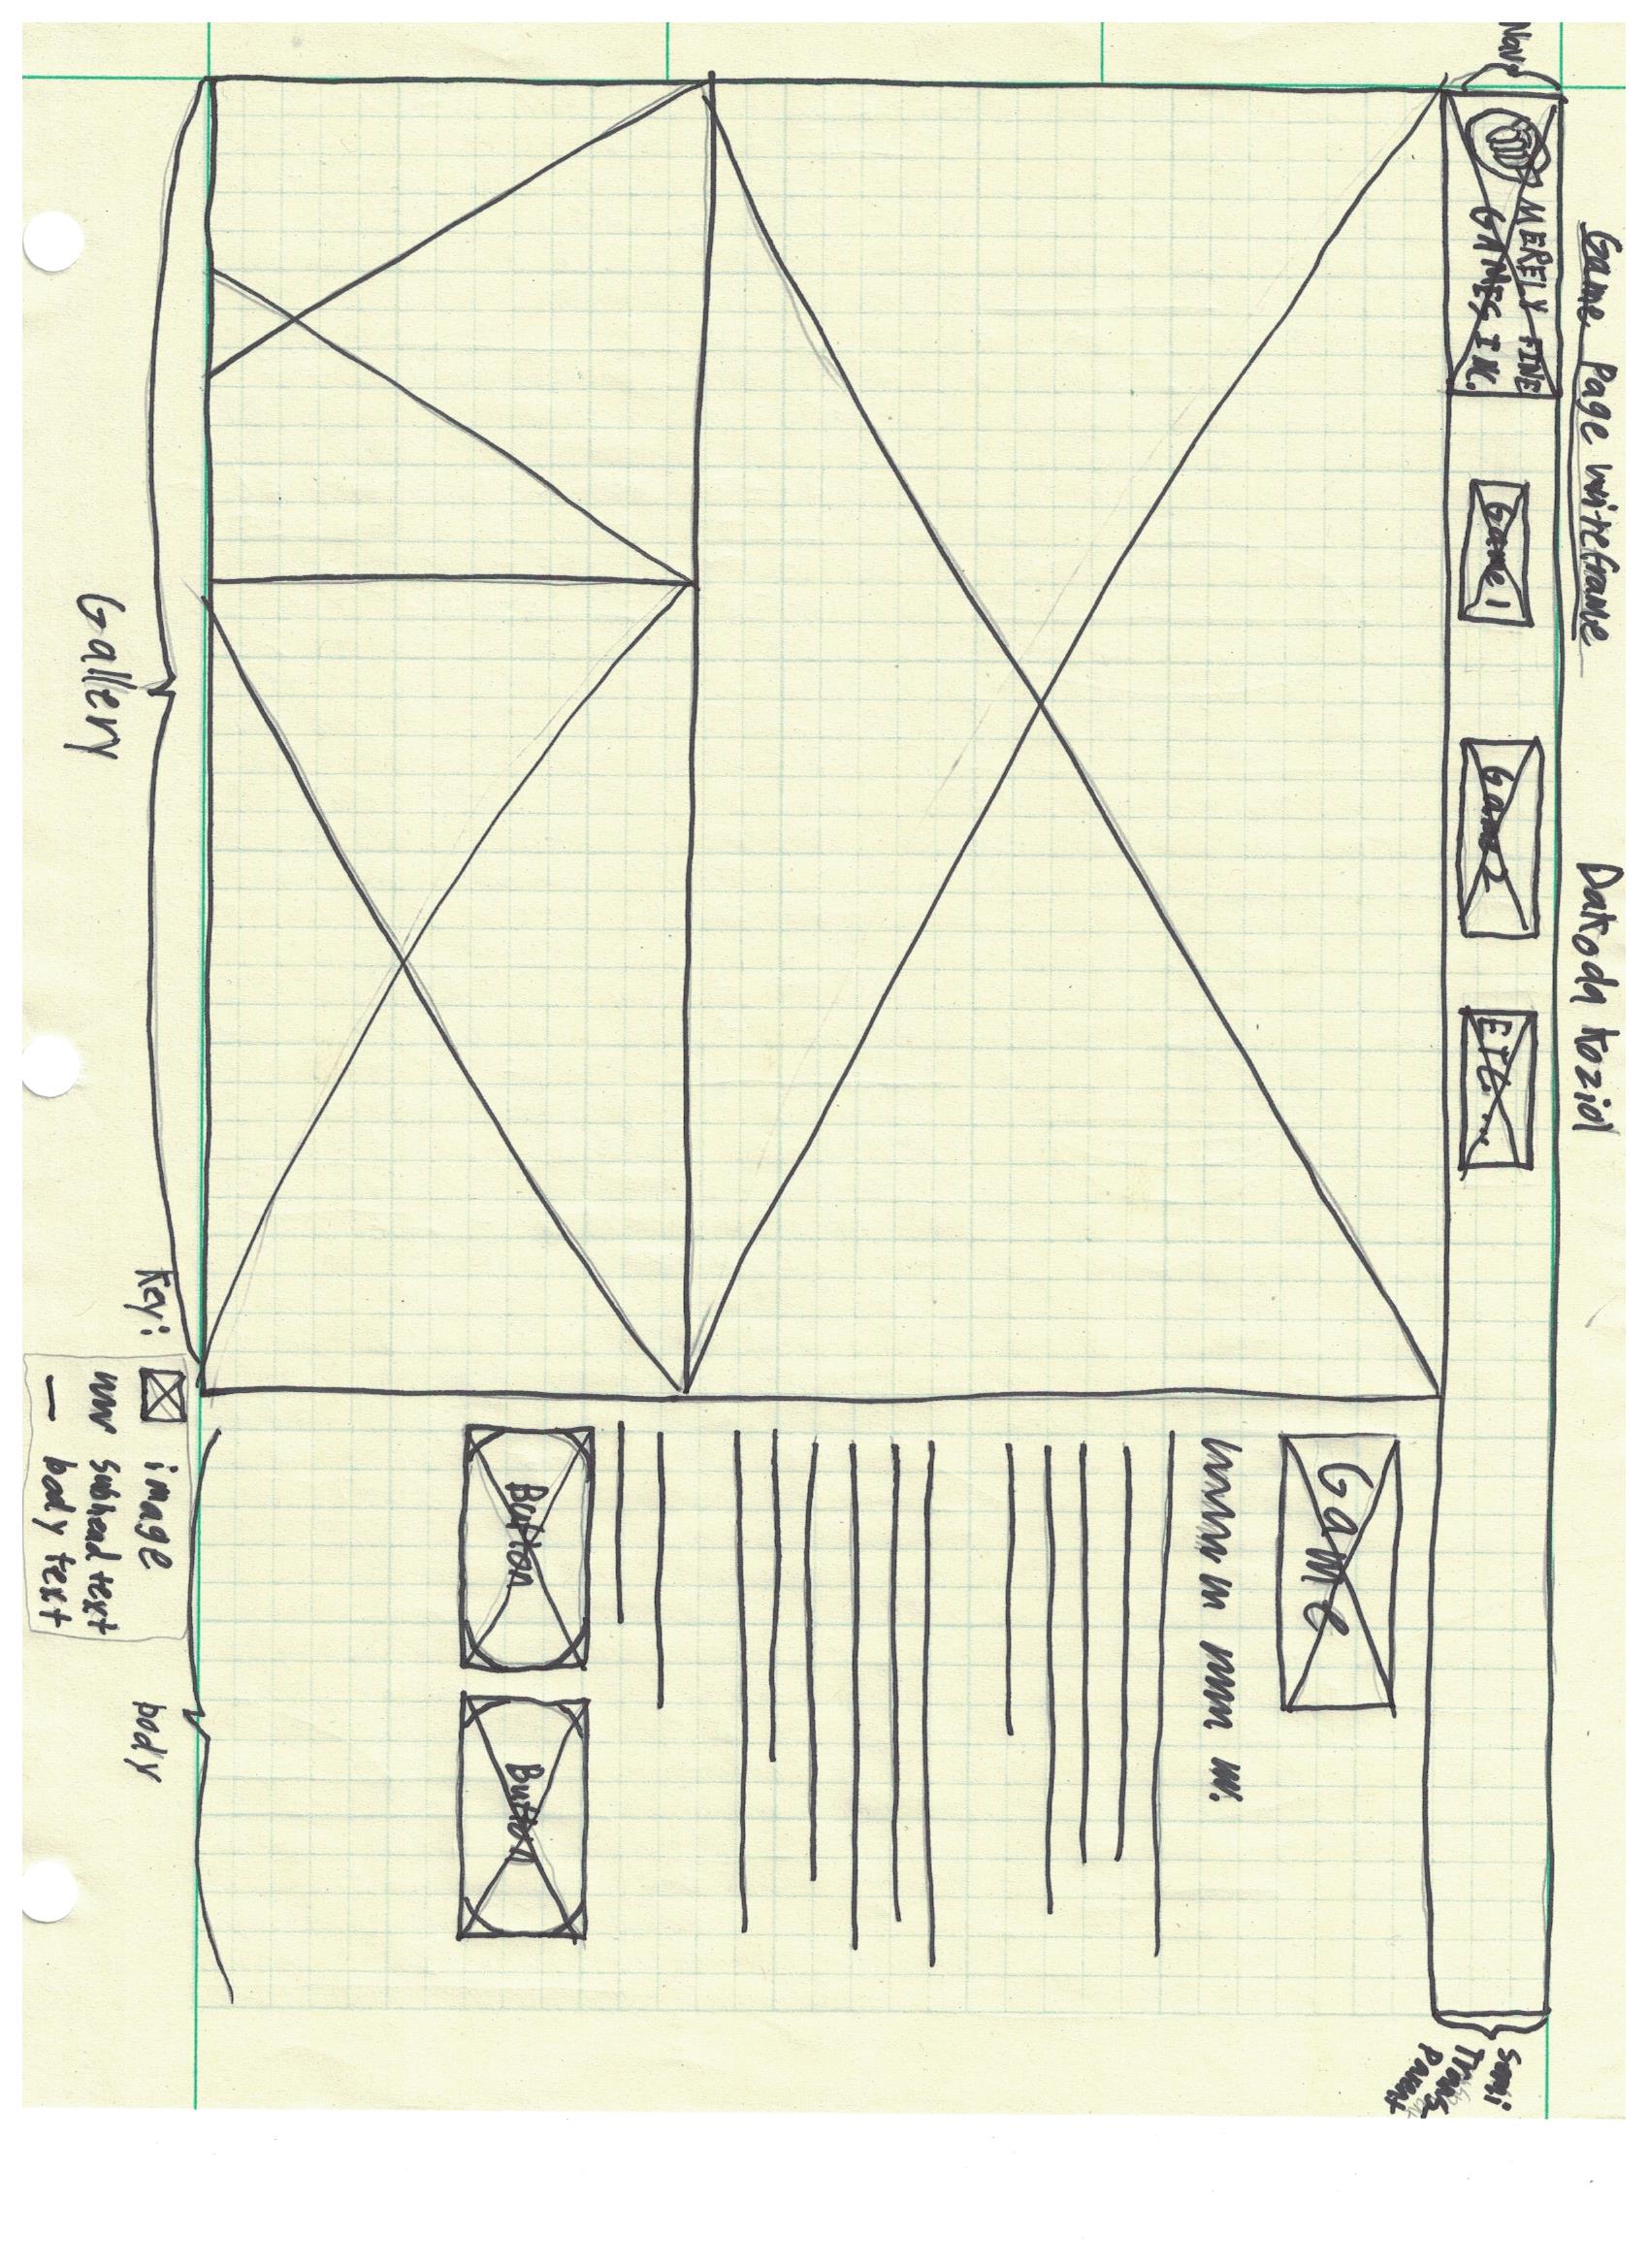 Game Page wireframe
Dakoda Koziol
Nav
MERELY FINE
GAMES INC.
Game 1
Game 2
ETC...
Semi
Trans-
Parent
Game
Button
Button
Gallery
Key:
image
subhead text
body text
body